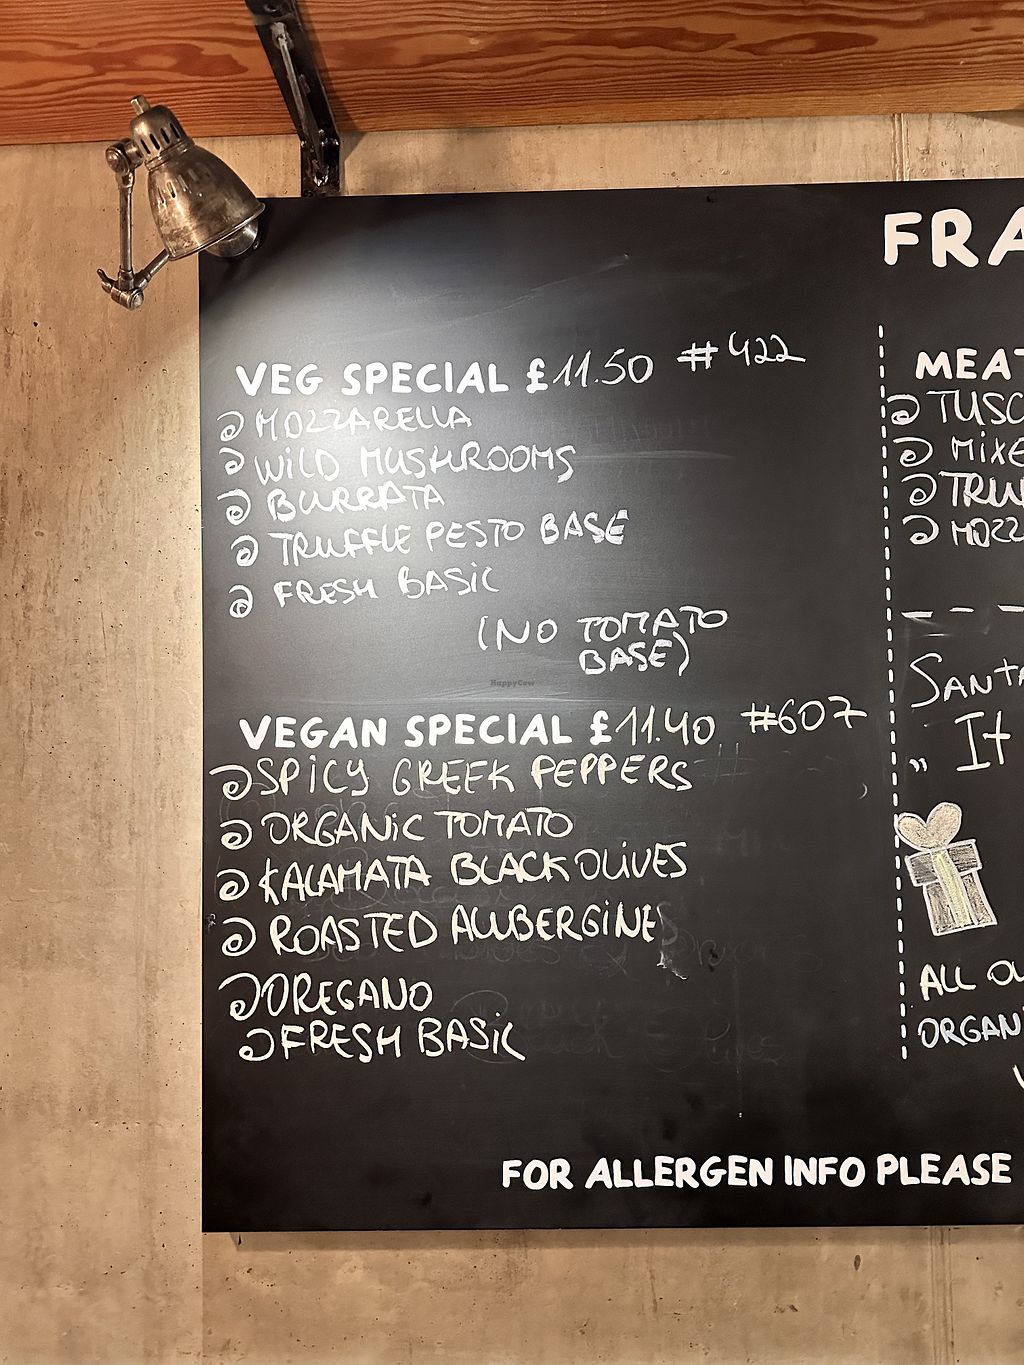 FRA
VEG SPECIAL £11.50 #422
MOZZARELLA
WILD MUSHROOMS
BURRATA
TRUFFLE PESTO BASE
FRESH BASIL
(NO TOMATO
BASE)
HappyCow
VEGAN SPECIAL £11.40 #607
SPICY GREEK PEPPERS
ORGANIC TOMATO
KALAMATA BLACK OLIVES
ROASTED AUBERGINE
OREGANO
FRESH BASIL
MEAT
TUSC
MIXE
TRU
MOZZ
SANTA
„ It
ALL OU
ORGAN
FOR ALLERGEN INFO PLEASE